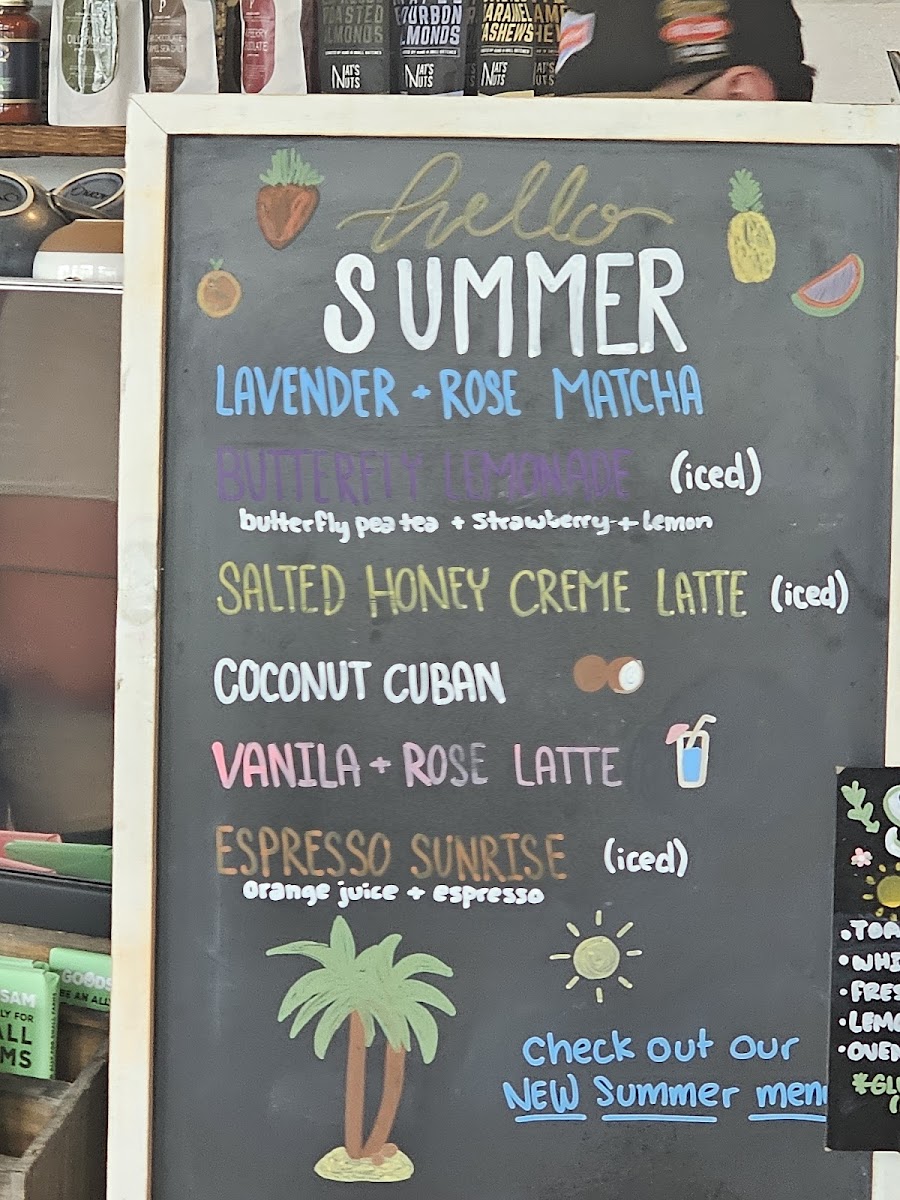 ROASTED
ALMONDS
NAT'S
NUTS
BOURBON
ALMONDS
NAT'S
NUTS
CARAMEL
CASHEWS
NAT'S
NUTS
hello
SUMMER
LAVENDER + ROSE MATCHA
BUTTERFLY LEMONADE (iced)
butterfly pea tea + strawberry + lemon
SALTED HONEY CREME LATTE (iced)
COCONUT CUBAN
VANILA + ROSE LATTE
ESPRESSO SUNRISE (iced)
orange juice + espresso
Check out our
NEW Summer men
GOODS
BE AN ALL
SAM
LY FOR
ALL
MS
• TOA
• WHI
• FRES
• LEMO
• OVEN
*GLU